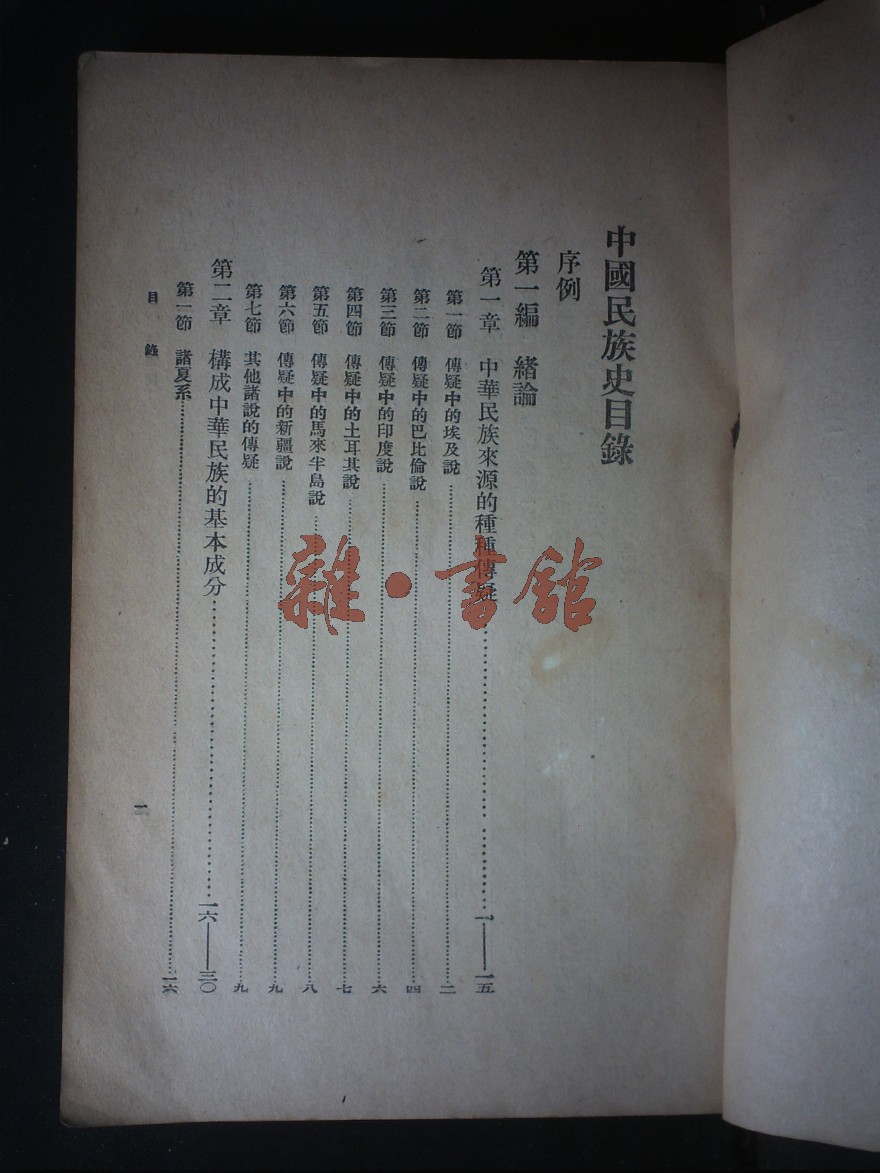 中國民族史目錄
序例
第一編 緒論
第一章 中華民族來源的種種傳疑……一——一五
第一節 傳疑中的埃及說……二
第二節 傳疑中的巴比倫說……四
第三節 傳疑中的印度說……六
第四節 傳疑中的土耳其說……七
第五節 傳疑中的馬來半島說……八
第六節 傳疑中的新疆說……九
第七節 其他諸說的傳疑……九
第二章 構成中華民族的基本成分……一六——三〇
第一節 諸夏系……一六
目錄
一
雜·書館